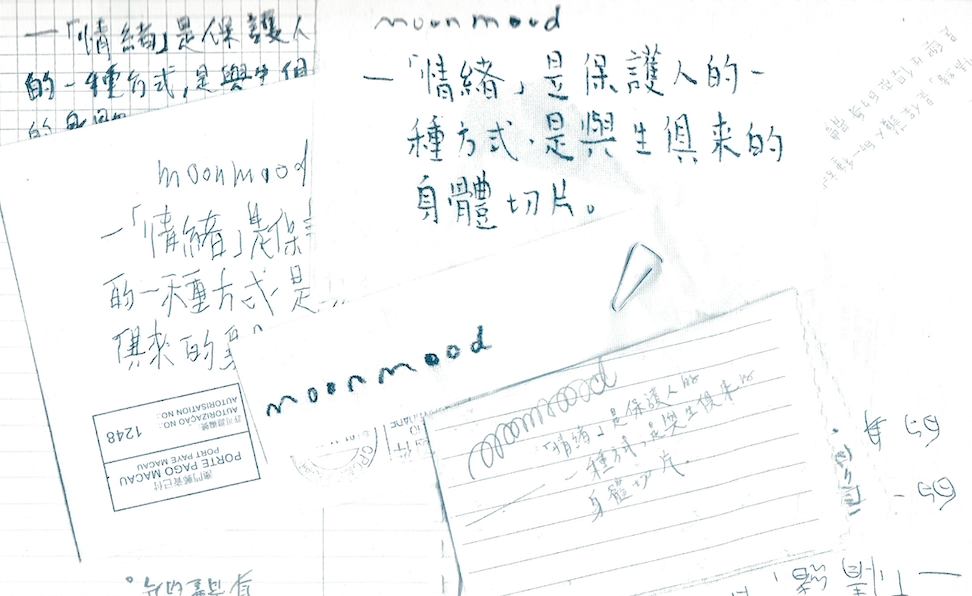 一「情緒」是保護人
的一種方式,是與生俱
moonmood
一「情緒」是保護人的一
種方式,是與生俱來的
身體切片。
moonmood
一「情緒」是保
的一種方式,是
俱來的身
moonmood
moonmood
「情緒」是保護人的
一種方式,是與生俱來的
身體切片.
1248
許可證編號
AUTORIZAÇÃO NO.:
AUTORISATION NO.:
澳門郵資已付
PORTE PAGO MACAU
PORT PAYE MACAU
身體切片。